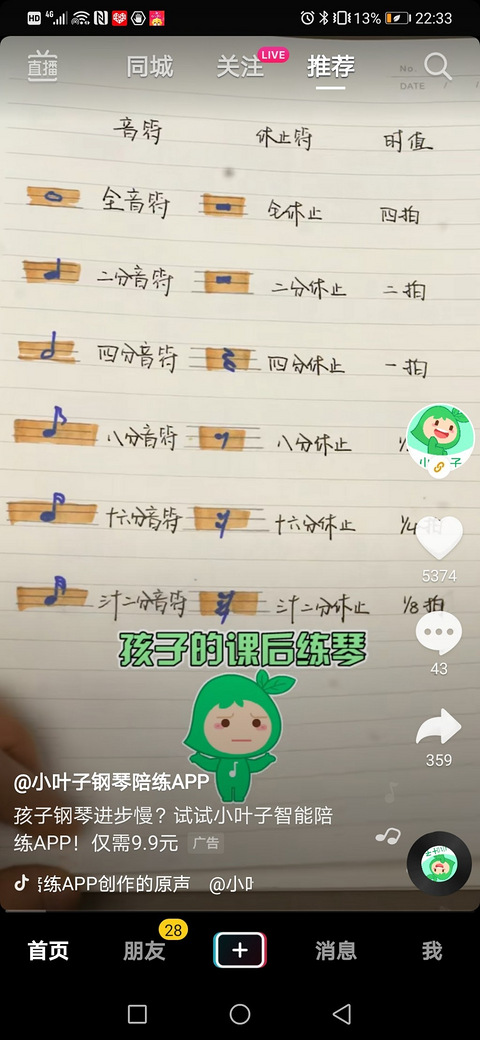 HD 4G 13% 22:33
直播 同城 关注 LIVE 推荐
No.
DATE / /
音符 休止符 时值
全音符 全休止 四拍
二分音符 二分休止 二拍
四分音符 四分休止 一拍
八分音符 八分休止
小 子
十六分音符 十六分休止 1/4拍
5374
三十二分音符 三十二分休止 1/8拍
孩子的课后练琴
43
359
@小叶子钢琴陪练APP
孩子钢琴进步慢？试试小叶子智能陪
练APP！仅需9.9元 广告
练APP创作的原声 @小叶
首页 朋友 28 消息 我